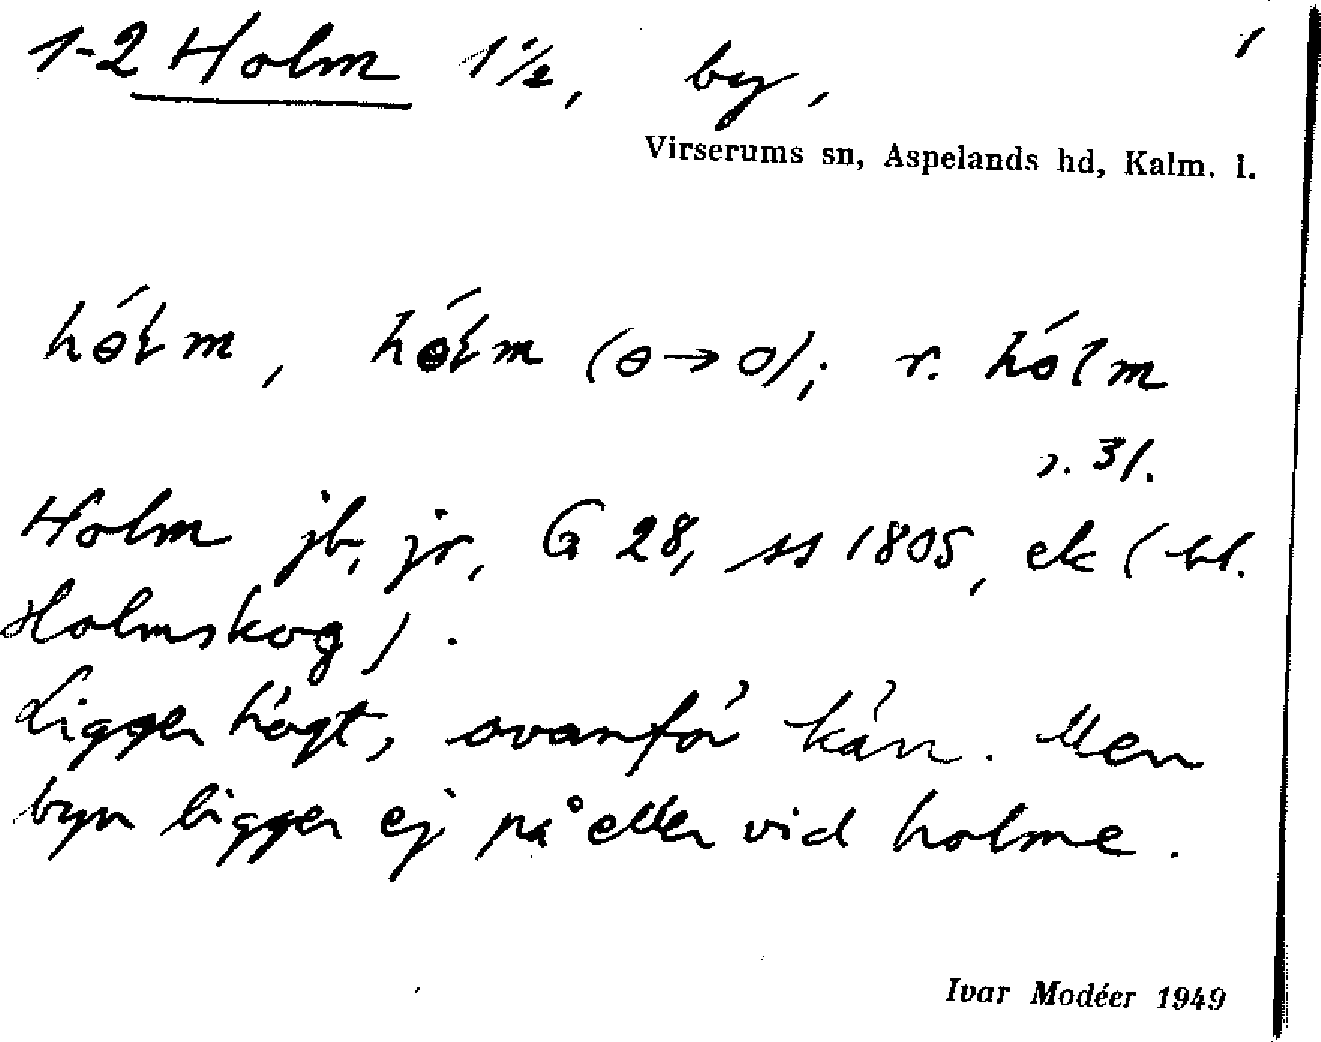 1-2 Holm 1 1/2, by, 1
Virserums sn, Aspelands hd, Kalm. l.
hɵ́ɫm, hɵ́ɫm (ɵ→o); r. hólm
s. 31.
Holm jb, jr, G 28, ss 1805, ek (bl.
Holmskog).
Ligger högt, ovanför kärr. Men
byn ligger ej på eller vid holme.
Ivar Modéer 1949